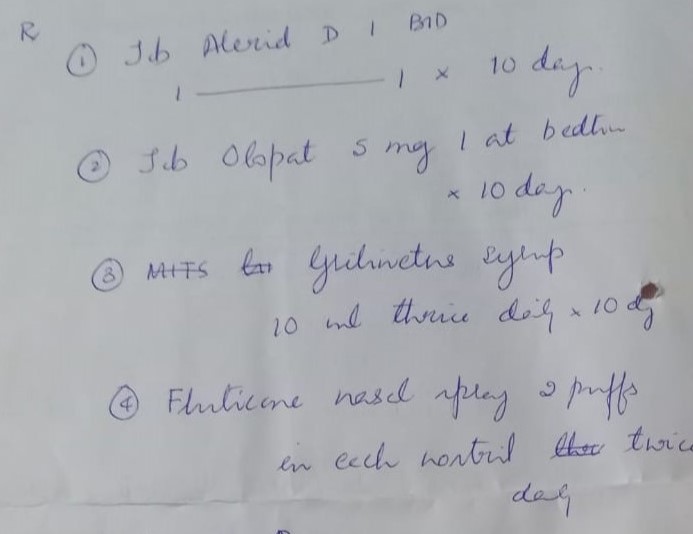 R
① Tb Alerid D 1 BID
1 ———— 1 x 10 day.
② Tb Olopat 5 mg 1 at bedtim
x 10 day.
③ MITS syrup
10 ml thrice daily x 10 dy
④ Fluticone nasal spray 2 puffs
in each nostril twice
daily